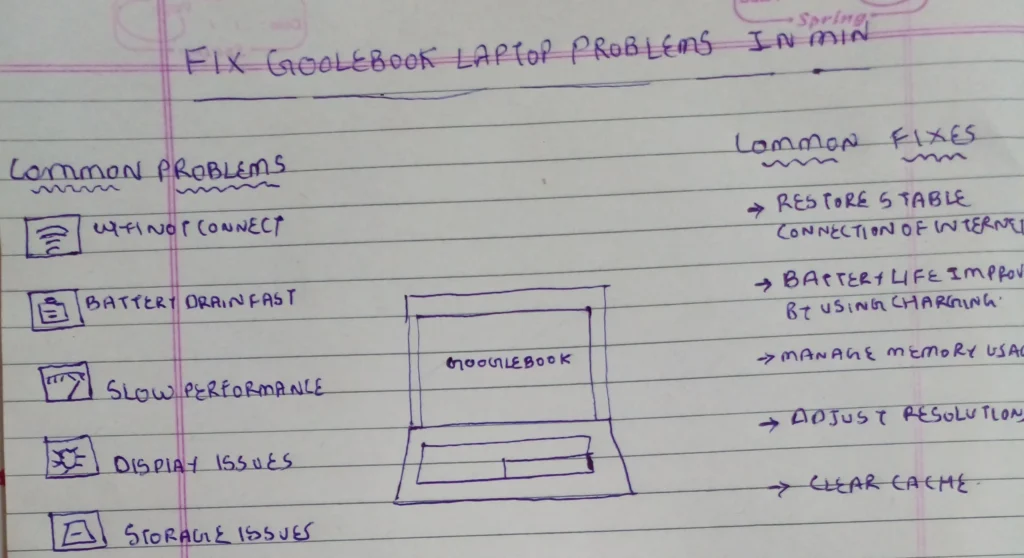 Spring
FIX GOOLEBOOK LAPTOP PROBLEMS IN MIN
COMMON PROBLEMS
WIFI NOT CONNECT
BATTERY DRAIN FAST
SLOW PERFORMANCE
DISPLAY ISSUES
STORAGE ISSUES
GOOGLEBOOK
COMMON FIXES
→ RESTORE STABLE
CONNECTION OF INTERNET
→ BATTERY LIFE IMPROV
BY USING CHARGING.
→ MANAGE MEMORY USAG
→ ADJUST RESOLUTION
→ CLEAR CACHE.